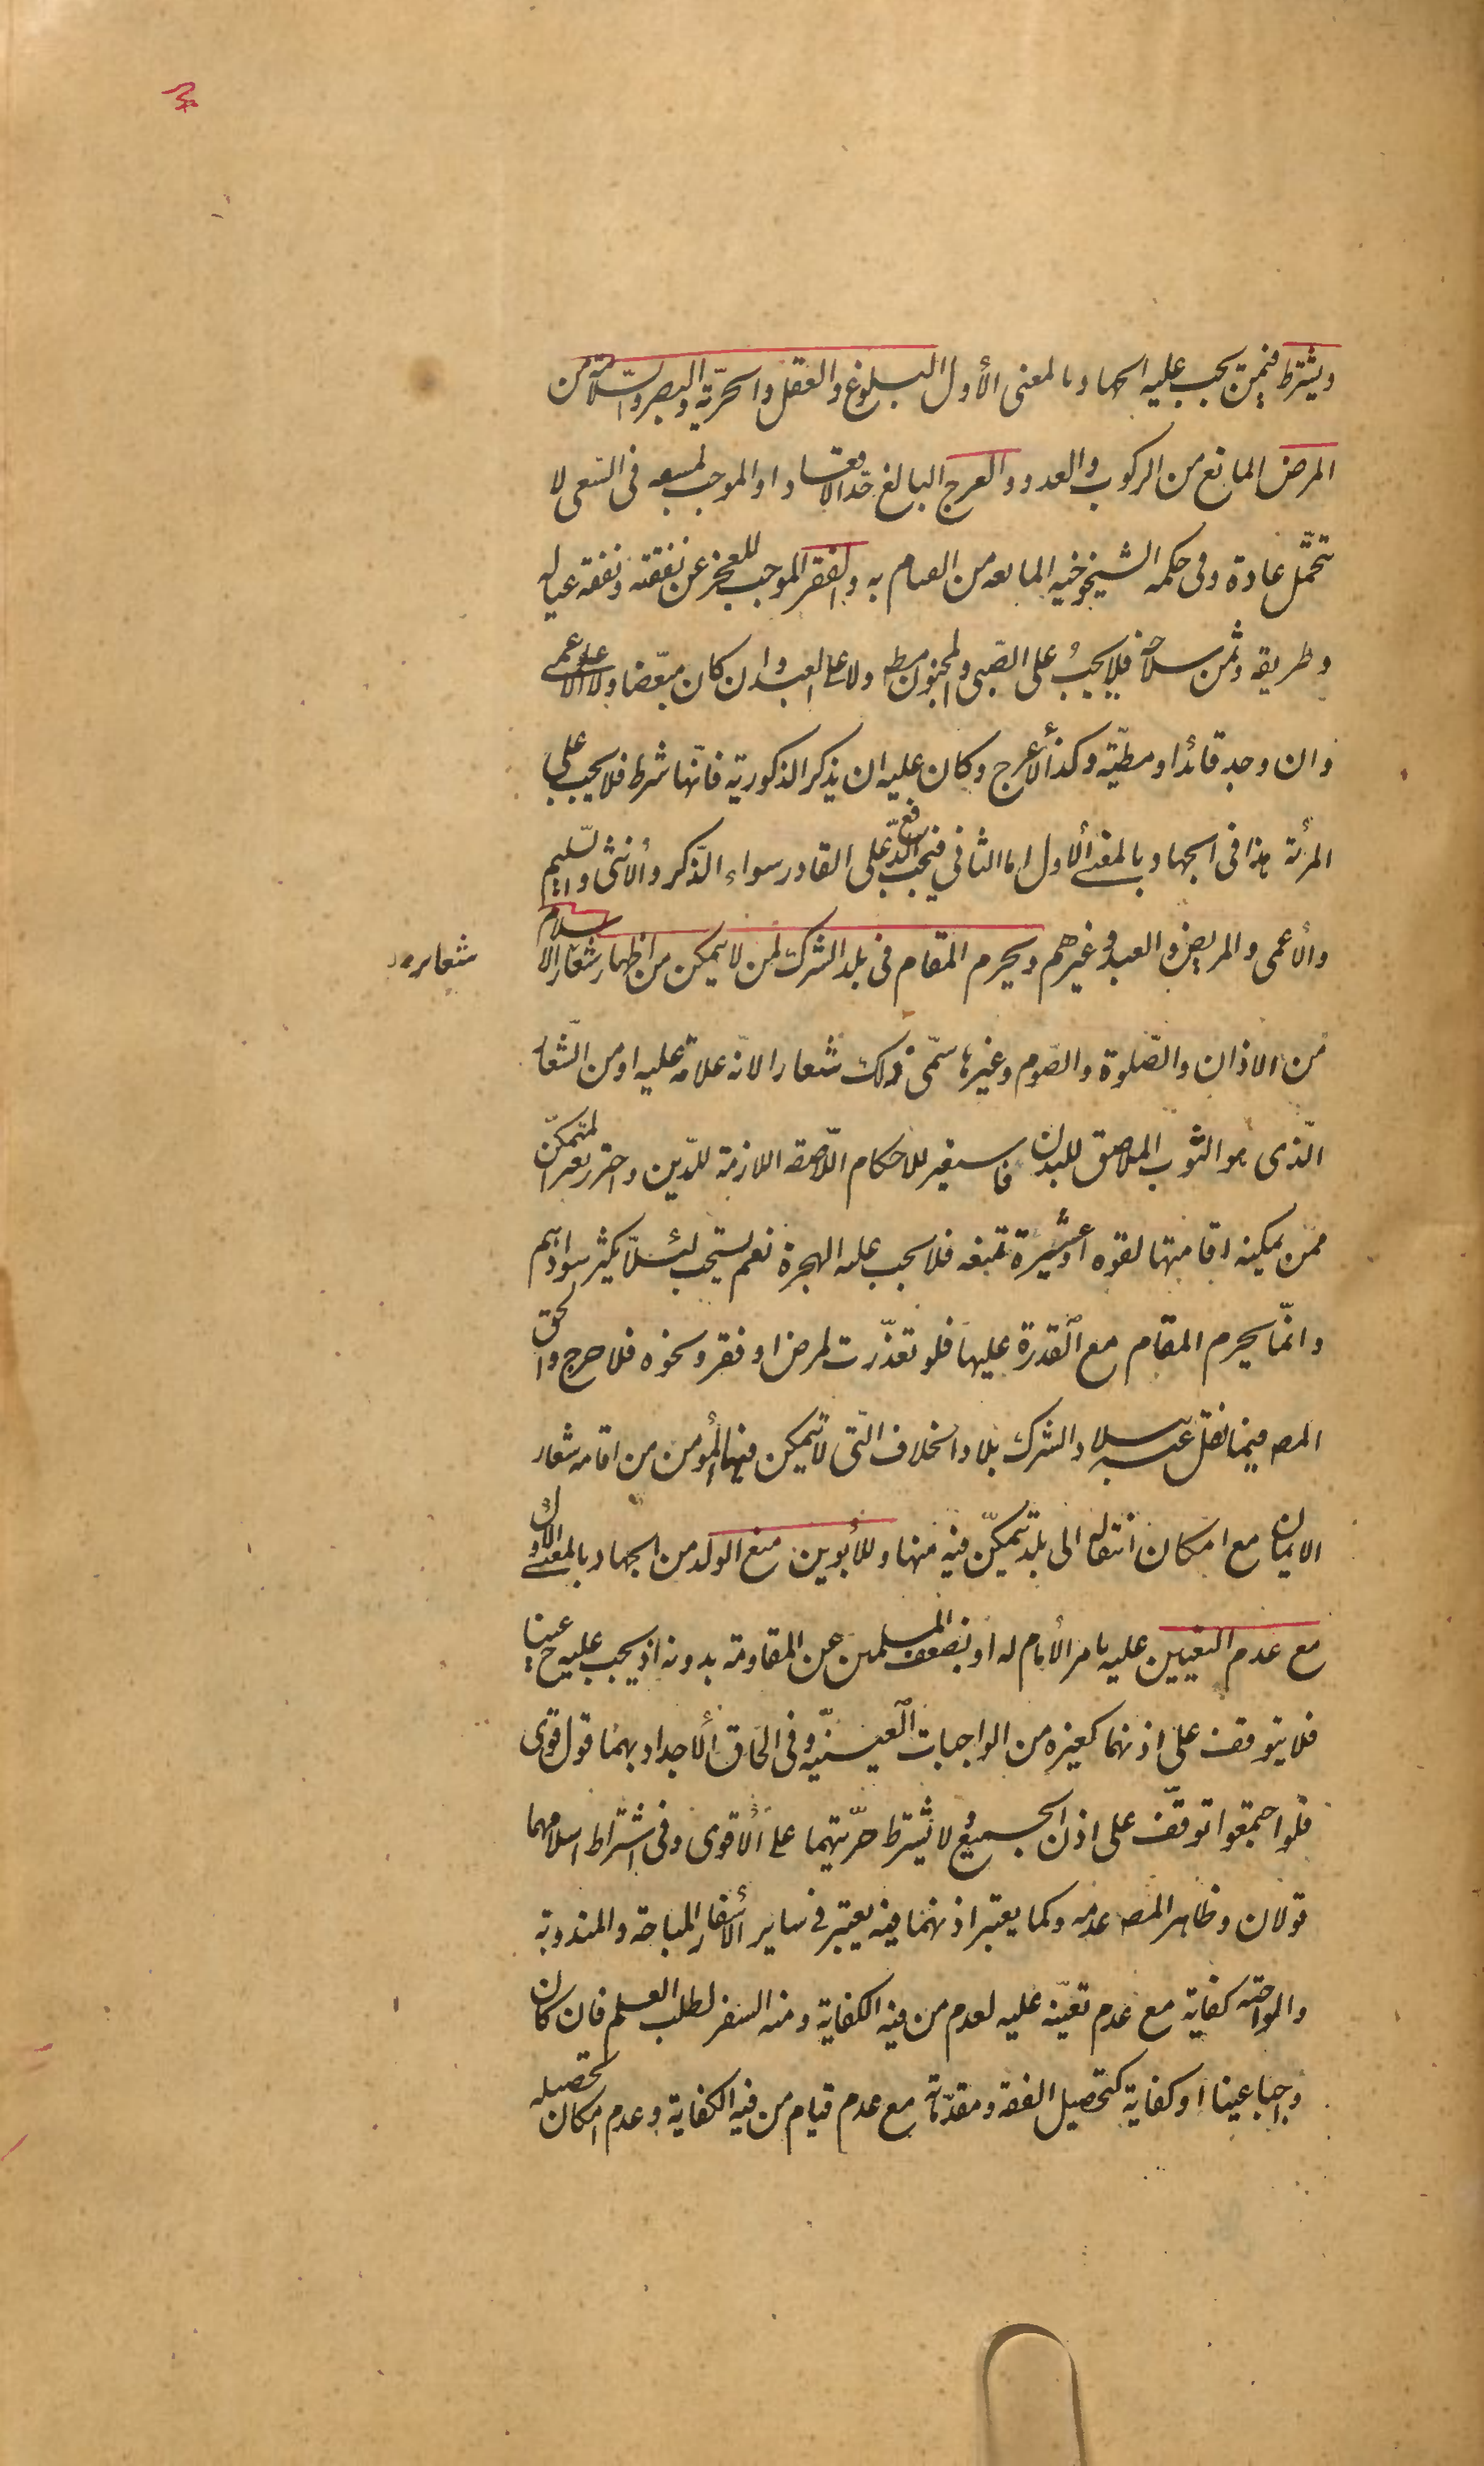 ويشترط فيمن يجب عليه الجهاد بالمعنى الأول البلوغ والعقل والحرّية والبصر والسّلامة من
المرض المانع من الركوب والعدو والعرج البالغ حدّ الاقعاد او الموجب لمشقة فى السّعى لا
تتحمّل عادة وفى حكمه الشيخوخيه المانعه من القيام به والفقر الموجب للعجز عن نفقته ونفقة عياله
وطريقه وثمن سلاحه فلا يجبُ على الصّبى والمجنون مط ولا على العبد وان كان مبعّضا ولا على الاعمى
وان وجد قائدا ومطيّه وكذا الأعرج وكان عليه ان يذكر الذكوريه فانّها شرط فلا يجب على
المرأة هذا فى الجهاد بالمعنى الأول اما الثاني فيجب الدّفع على القادر سواء الذّكر والأنثى والسّليم
والأعمى والمريض والعبد وغيرهم ويحرم المقام فى بلد الشرك لمن لا يتمكن من اظهار شعائر الاسلام
شعاير
من الاذان والصّلوة والصّوم وغيرها سمّى ذلك شعارا لانّه علامة عليه او من الشّعار
الّذى هو الثوب الملاصق للبدن فاستعير للاحكام اللّاصقة اللازمة للدّين واحترز بغير المتمكّن
ممّن يمكنه اقامتها لقوه او عشيرة تمنعه فلا يجب عليه الهجرة نعم يستحب لئلّا يكثر سوادهم
وانّما يحرم المقام مع القدرة عليها فلو تعذّرت لمرض او فقر ونحوه فلا حرج والحق
المصـ فيما نقل عنه ببلاد الشرك بلاد الخلاف التى لا يتمكن فيها المؤمن من اقامه شعار
الايمان مع امكان انتقاله الى بلد يتمكّن فيه منها وللأبوين منع الولد من الجهاد بالمعنى الاول
مع عدم التعيين عليه بامر الأمام له او بضعف المسلمين عن المقاومة بدونه اذ يجب عليه ح عينا
فلا يتوقف على اذنهما كغيره من الواجبات العينيّه وفى الحاق الأجداد بهما قول قوى
فلو اجتمعوا توقّف على اذن الجميع ولا يشترط حرّيتهما على الأقوى وفى اشتراط اسلامهما
قولان وظاهر المصـ عدمه وكما يعتبر اذنهما فيه يعتبر فى ساير الأسفار المباحة والمندوبة
والواجبه كفاية مع عدم تعيّنه عليه لعدم من فيه الكفاية ومنه السفر لطلب العلم فان كان
واجبا عينا او كفاية كتحصيل الفقه ومقدّماته مع عدم قيام من فيه الكفاية وعدم امكان تحصيله